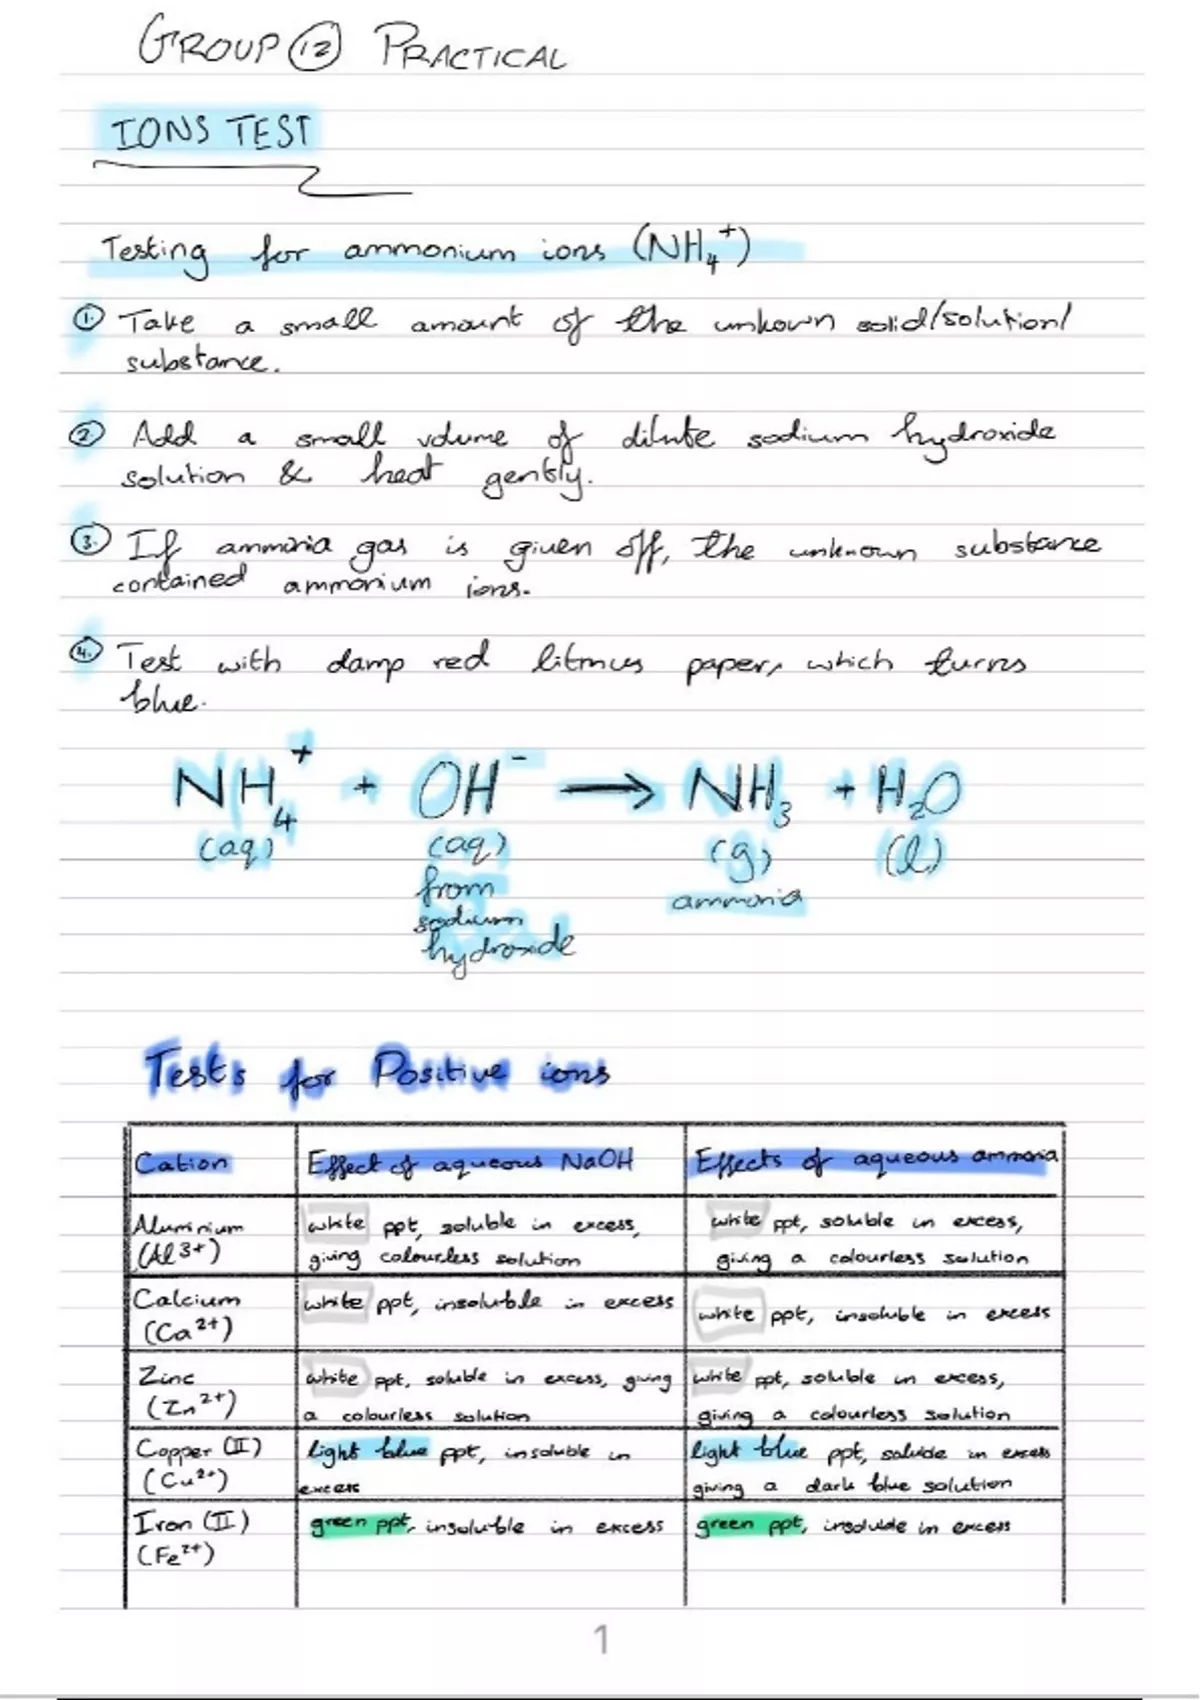 GROUP 12 PRACTICAL
IONS TEST
Testing for ammonium ions (NH₄⁺)
1. Take a small amount of the unkown solid/solution/
substance.
2. Add a small volume of dilute sodium hydroxide
solution & heat gently.
3. If ammonia gas is given off, the unknown substance
contained ammonium ions.
4. Test with damp red litmus paper, which turns
blue.
NH₄⁺ + OH⁻ → NH₃ + H₂O
(aq) (aq) (g) (l)
from ammonia
sodium
hydroxide
Tests for Positive ions
Cation Effect of aqueous NaOH Effects of aqueous ammonia
Aluminium white ppt, soluble in excess, white ppt, soluble in excess,
(Al³⁺) giving colourless solution giving a colourless solution
Calcium white ppt, insoluble in excess white ppt, insoluble in excess
(Ca²⁺)
Zinc white ppt, soluble in excess, giving white ppt, soluble in excess,
(Zn²⁺) a colourless solution giving a colourless solution
Copper (II) light blue ppt, insoluble in light blue ppt, soluble in excess
(Cu²⁺) excess giving a dark blue solution
Iron (II) green ppt, insoluble in excess green ppt, insoluble in excess
(Fe²⁺)
1